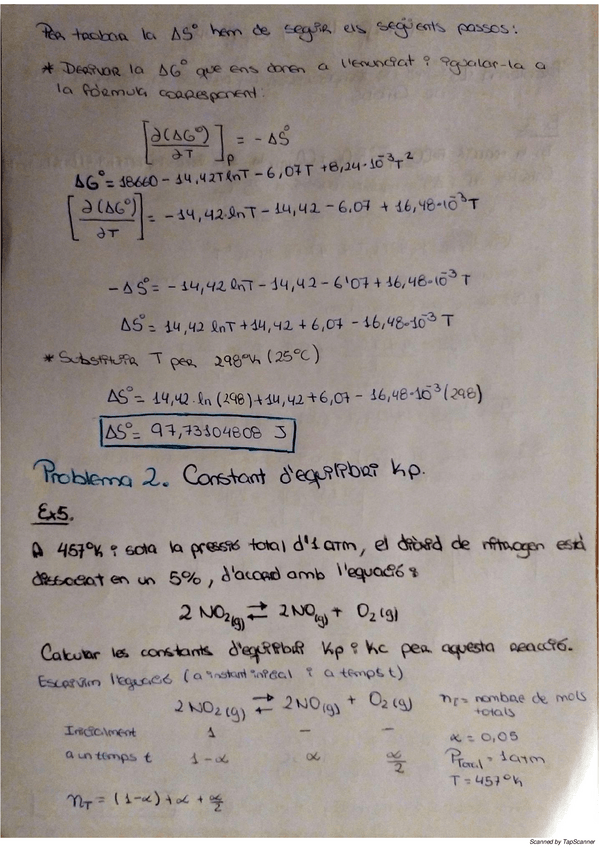 Per trobar la ΔS° hem de seguir els següents passos:
* Derivar la ΔG° que ens donen a l'enunciat i igualar-la a
la fórmula corresponent:
[∂(ΔG°)/∂T]p = -ΔS°
ΔG° = 18660 - 14,42T lnT - 6,07T + 8,24·10⁻³T²
[∂(ΔG°)/∂T] = -14,42·lnT - 14,42 - 6,07 + 16,48·10⁻³T
-ΔS° = -14,42 lnT - 14,42 - 6'07 + 16,48·10⁻³ T
ΔS° = 14,42 lnT + 14,42 + 6,07 - 16,48·10⁻³ T
* Substituir T per 298°K (25°C)
ΔS° = 14,42·ln(298) + 14,42 + 6,07 - 16,48·10⁻³(298)
ΔS° = 97,73104808 J
Problema 2. Constant d'equilibri Kp.
Ex5.
A 457°K i sota la pressió total d'1 atm, el diòxid de nitrogen està
dissociat en un 5%, d'acord amb l'equació:
2 NO₂(g) ⇄ 2NO(g) + O₂(g)
Calcular les constants d'equilibri Kp i Kc per aquesta reacció.
Escrivim l'equació (a instant inicial i a temps t)
2 NO₂(g) ⇄ 2NO(g) + O₂(g)
nT = nombre de mols
totals
Inicialment 1 - -
α = 0,05
a un temps t 1-α α α/2
PTotal = 1 atm
T = 457°K
nT = (1-α) + α + α/2
Scanned by TapScanner